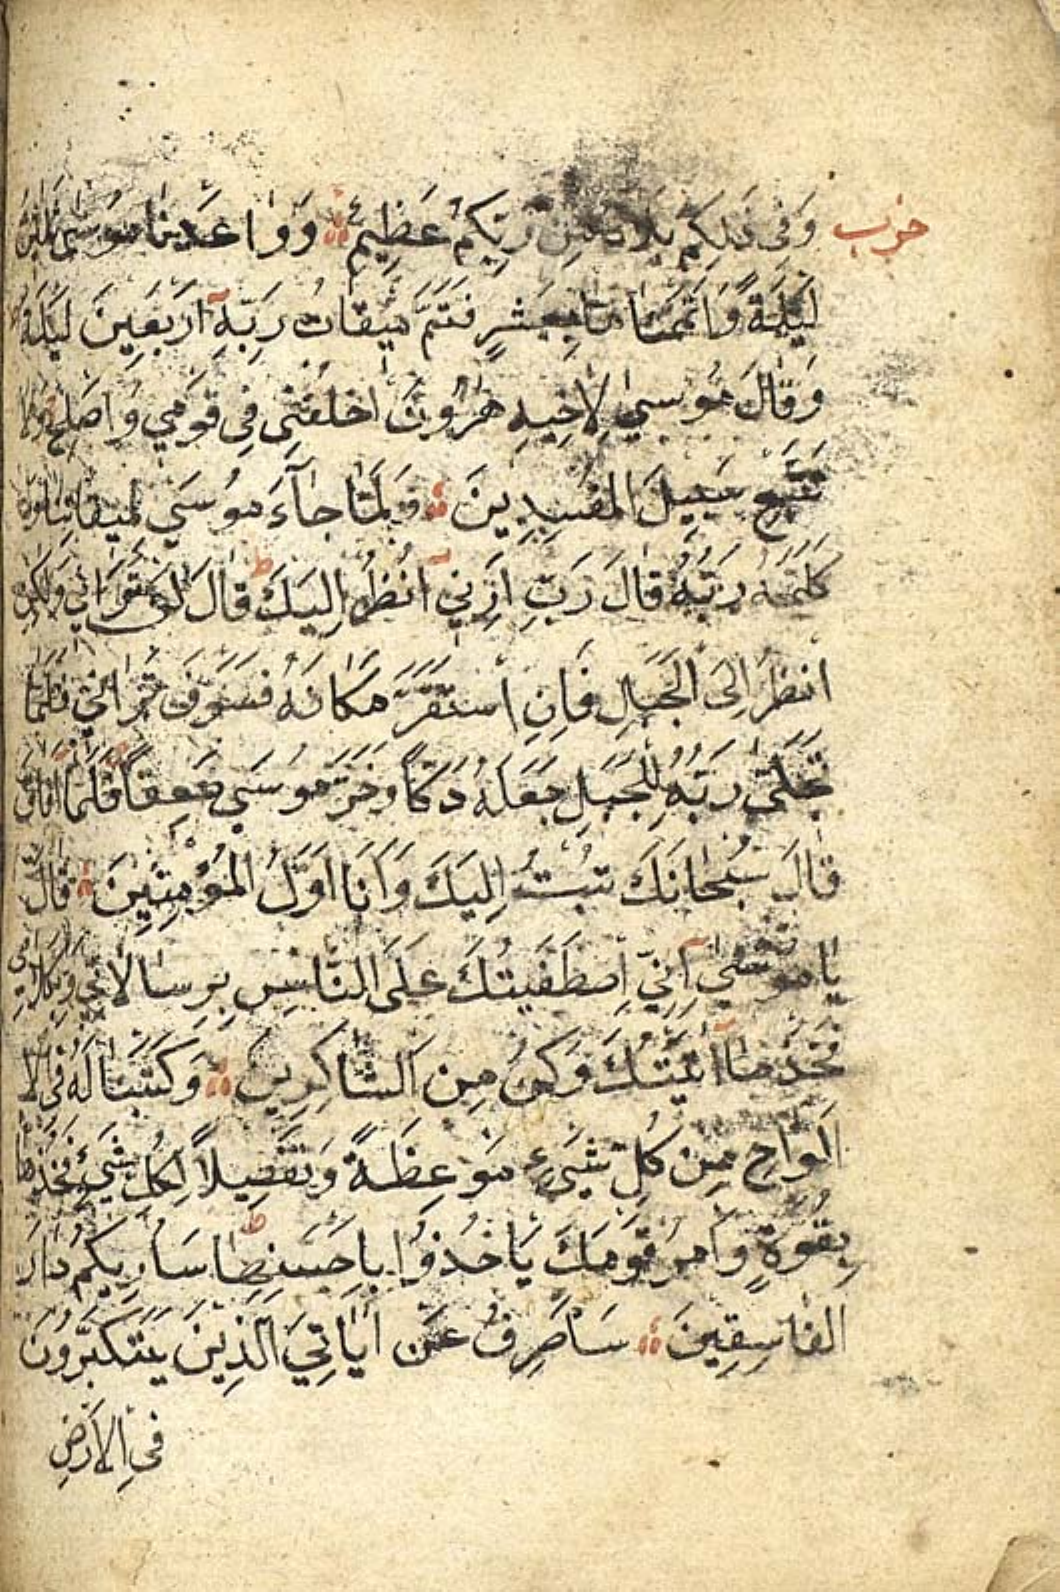 حزب
وَفِى ذٰلِكُمْ بَلَاءٌ مِنْ رَبِّكُمْ عَظِيمٌ وَوَاعَدْنَا مُوسٰى ثَلٰثِينَ
لَيْلَةً وَاَتْمَمْنَاهَا بِعَشْرٍ فَتَمَّ مِيقَاتُ رَبِّهِ اَرْبَعِينَ لَيْلَةً
وَقَالَ مُوسٰي لِاَخِيهِ هٰرُونَ اخْلُفْنِى فِى قَوْمِي وَاَصْلِحْ وَلَا
تَتَّبِعْ سَبِيلَ الْمُفْسِدِينَ وَلَمَّا جَآءَ مُوسٰي لِمِيقَاتِنَا وَ
كَلَّمَهُ رَبُّهُ قَالَ رَبِّ اَرِنِي اَنْظُرْ اِلَيْكَ قَالَ لَنْ تَرَانِي وَلٰكِنِ
انْظُرْ اِلَى الْجَبَلِ فَاِنِ اسْتَقَرَّ مَكَانَهُ فَسَوْفَ تَرَانِي فَلَمَّا
تَجَلّٰى رَبُّهُ لِلْجَبَلِ جَعَلَهُ دَكّاً وَخَرَّ مُوسٰي صَعِقاً فَلَمَّا اَفَاقَ
قَالَ سُبْحَانَكَ تُبْتُ اِلَيْكَ وَاَنَا اَوَّلُ الْمُؤْمِنِينَ قَالَ
يَا مُوسٰي اِنِّي اصْطَفَيْتُكَ عَلَى النَّاسِ بِرِسَالَاتِي وَبِكَلَامِي
فَخُذْ مَا اٰتَيْتُكَ وَكُنْ مِنَ الشَّاكِرِينَ وَكَتَبْنَا لَهُ فِى الْا
اَلْوَاحِ مِنْ كُلِّ شَيْءٍ مَوْعِظَةً وَتَفْصِيلاً لِكُلِّ شَيْءٍ فَخُذْهَا
بِقُوَّةٍ وَاْمُرْ قَوْمَكَ يَاْخُذُوا بِاَحْسَنِهَا سَاُرِيكُمْ دَارَ
الْفَاسِقِينَ سَاَصْرِفُ عَنْ اٰيَاتِيَ الَّذِينَ يَتَكَبَّرُونَ
فِى الْاَرْضِ